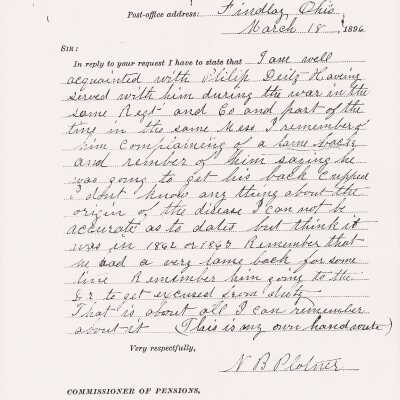 Post-office address: Findlay, Ohio
March 18, 1896
SIR:
In reply to your request I have to state that I am well
acquainted with Philip Deitz Having
served with him during the war in the
same Regt and Co and part of the
time in the same Mess I remember of
him complaining of a lame back
and rember of him saying he
was going to get his back Cupped
I dont know any thing about the
origin of the disease I can not be
accurate as to dates but think it
was in 1862 or 1863 Remember that
he had a very lame back for some
time Remember him going to the
Dr to get excused from duty
That is about all I can remember
about it (This is my own hand write)
Very respectfully,
N B Plotner
COMMISSIONER OF PENSIONS,